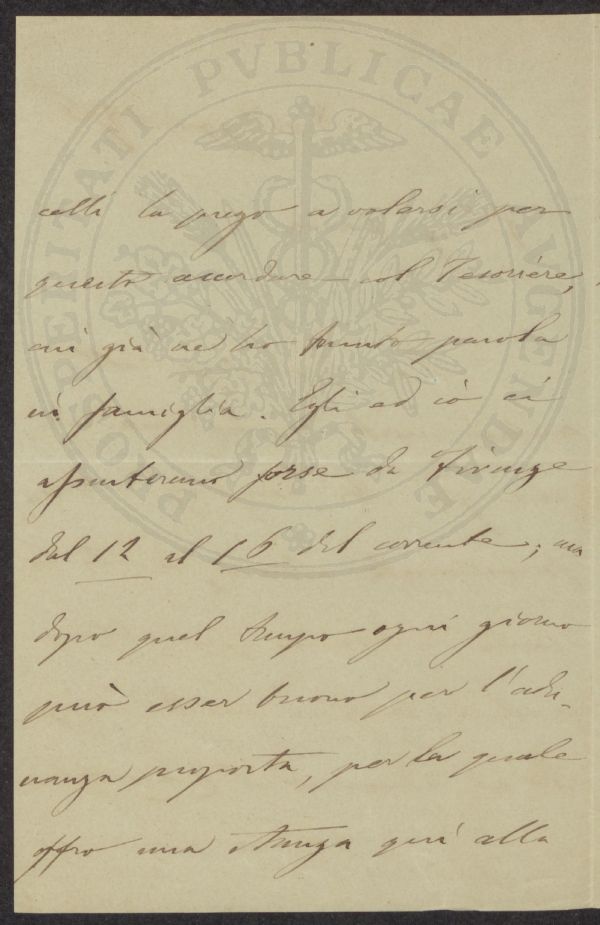 PROSPERITATI PVBLICAE AVGENDAE
celli la prego a volersi per
questo accordare col Tesoriere,
cui già ne ho tenuto parola
in famiglia. Egli ed io ci
assenteremo forse da Firenze
dal 12 al 16 del corrente; ma
dopo quel tempo ogni giorno
può esser buono per l'adu-
nanza proposta, per la quale
offro una stanza qui alla